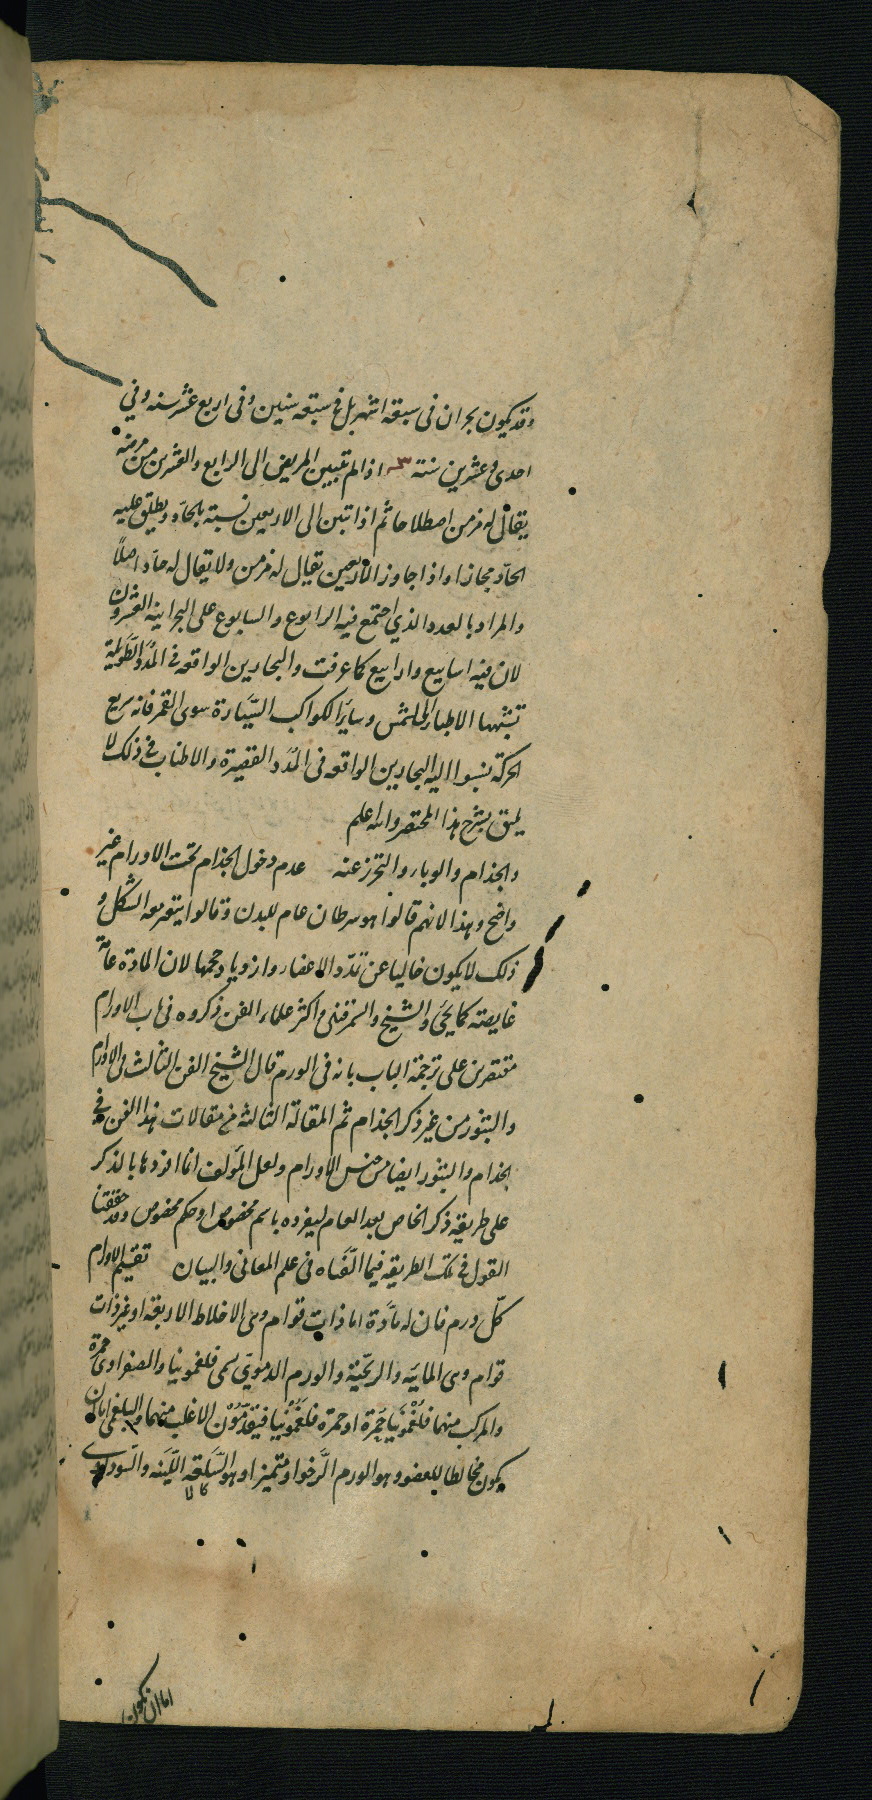 وقد يكون بحران في سبعة اشهر بل في سبعة سنين وفي اربع عشر سنه وفي
احدى وعشرين سنته اذا لم تبين المريض الى الرابع والعشرين من مرضه
يقال له مزمن اصطلاحا ثم اذا تبين الى الاربعين نسبة بالحاد ويطلق عليه
الحاد مجازا واذا جاوز الاربعين يقال له مزمن ولا يقال له حاد اصلا
والمراد بالعدد الذي اجتمع فيه الرابوع والسابوع على البحرانيه العشرون
لان فيه اسابيع وارابيع كما عرفت والبحارين الواقعه في المدد الطويلة
الاطباء الى الشمس وساير الكواكب السيارة سوى القمر فانه سريع
الحركة نسبوا اليه البحارين الواقعه في المدد القصيرة والاطناب في ذلك لا
يليق بشرح هذا المختصر والله اعلم
والجذام والوباء والتحرز عنه عدم دخول الجذام تحت الاورام غير
واضح وهذا لانهم قالوا هو سرطان عام للبدن وقالوا يتغير معه الشكل و
ذلك لا يكون خاليا عن تمدد الاعضاء وازدياد حجمها لان المادة عامة
غايصته كما يجئ والشيخ والسمرقندي واكثر علماء الفن ذكروه في باب الاورام
مقتصرين على ترجمة الباب بانه في الورم قال الشيخ الفن الثالث في الاورام
والبثور من غير ذكر الجذام ثم المقالة الثالثة من مقالات هذا الفن في
الجذام والبثور ايضا من جنس الاورام ولعل المؤلف انما افردها بالذكر
على طريقة ذكر الخاص بعد العام ليفرده باسم مخصوص او حكم مخصوص وقد حققنا
القول في تلك الطريقه فيما الفناه في علم المعاني والبيان تقسيم الاورام
كل ورم فان له مادة اما ذات قوام وهي الاخلاط الاربعة او غير ذات
قوام وهي المائيه والريحية والورم الدموي يسمى فلغمونيا والصفراوي حمرة
والمركب منهما فلغمونيا حمرة او حمرة فلغمونيا فيقدمون الاغلب منهما والبلغمي اما ان
يكون مخالطا للعضو وهو الورم الرخو او متميزا وهو السلعة اللينه والسوداوي
اما ان يكون